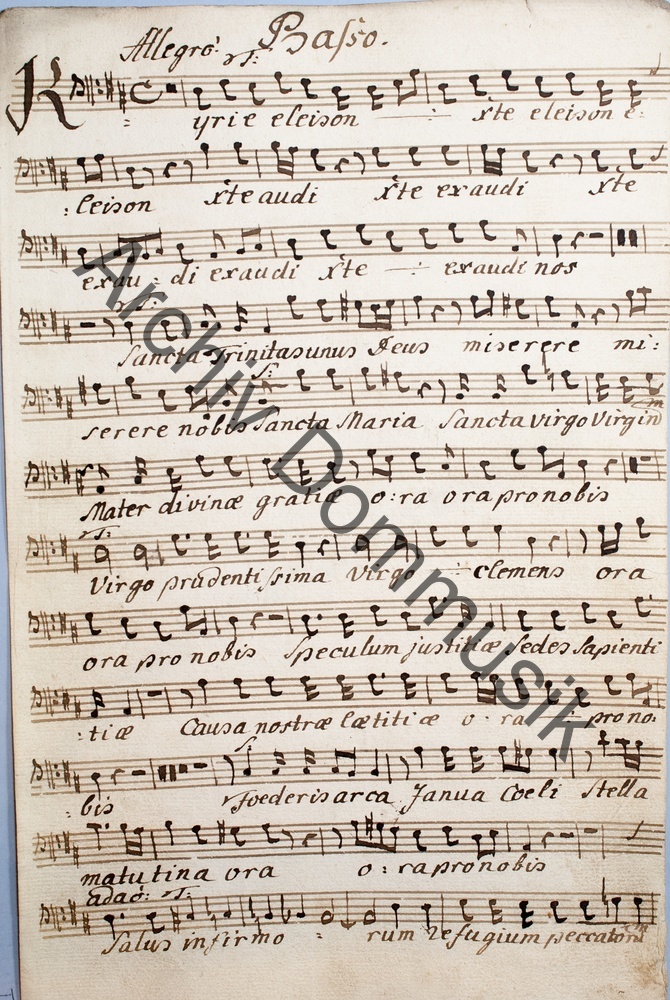 Basso.
Allegro: T:
Kyrie eleison x̃te eleison e:
:leison x̃te audi x̃te exaudi x̃te
exau: di exaudi x̃te exaudi nos
T:
Sancta Trinitas unus Deus miserere mi:
S:
serere nobis Sancta Maria Sancta Virgo Virginũm
Mater divinæ gratiæ o:ra ora pro nobis
T:
Virgo prudentissima Virgo clemens ora
ora pro nobis Speculum justitiæ Sedes Sapienti
:tiæ Causa nostræ lætitiæ o:ra pro no:
S:
:bis Foederis arca Janua Coeli Stella
matutina ora o:ra pro nobis
adaō: T:
Salus infirmo : rum Refugium peccatorum
Archiv Dommusik